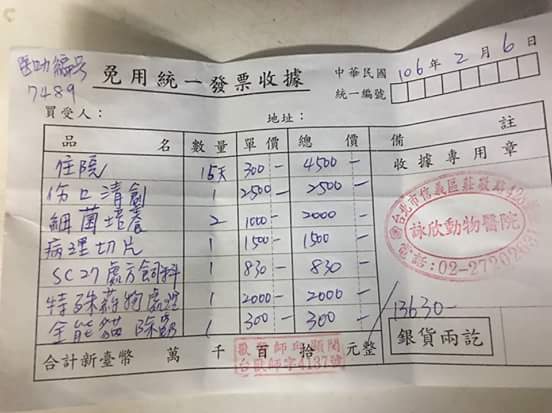 醫助編号
7489
免用統一發票收據
中華民國 106年 2月 6日
統一編號
買受人：
地址：
品名 數量 單價 總價 備註
住院 15天 300- 4500-
傷口清創 1 2500- 2500-
細菌培養 2 1000- 2000
病理切片 1 1500- 1500
SC27處方飼料 1 830- 830-
特殊藥物處理 1 2000- 2000-
全能貓 1 300- 300-
收據專用章
台北市信義區莊敬路
詠欣動物醫院
電話：02-2720
13630-
銀貨兩訖
合計新臺幣 萬 千 百 拾 元整
獸醫師
台獸師字4137號